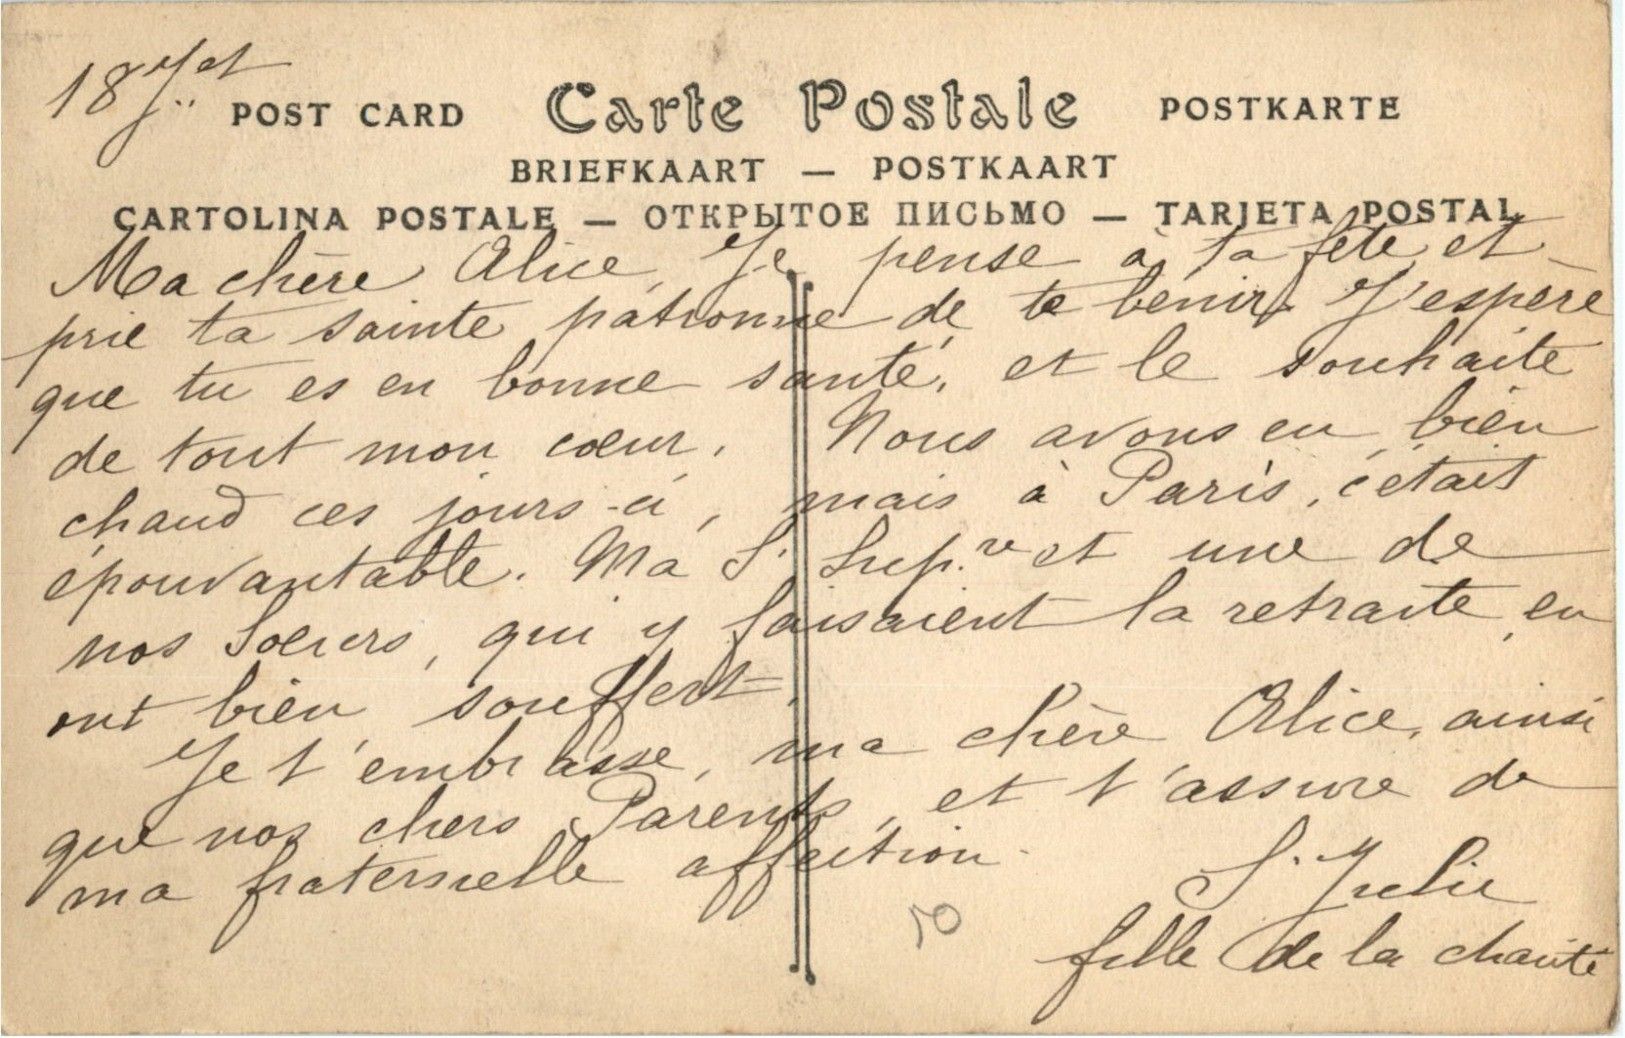 18 Jet
POST CARD Carte Postale POSTKARTE
BRIEFKAART — POSTKAART
CARTOLINA POSTALE — ОТКРЫТОЕ ПИСЬМО — TARJETA POSTAL
Ma chère Alice, Je pense à ta fête, et
prie ta sainte patronne de te bénir. J'espère
que tu es en bonne santé, et le souhaite
de tout mon cœur. Nous avons eu bien
chaud ces jours-ci, mais à Paris, c'était
épouvantable. Ma S. Sup.re et une de
nos Soeurs, qui y faisaient la retraite, en
ont bien souffert.
Je t'embrasse, ma chère Alice, ainsi
que nos chers Parents, et t'assure de
ma fraternelle affection.
S. Julie
fille de la charité